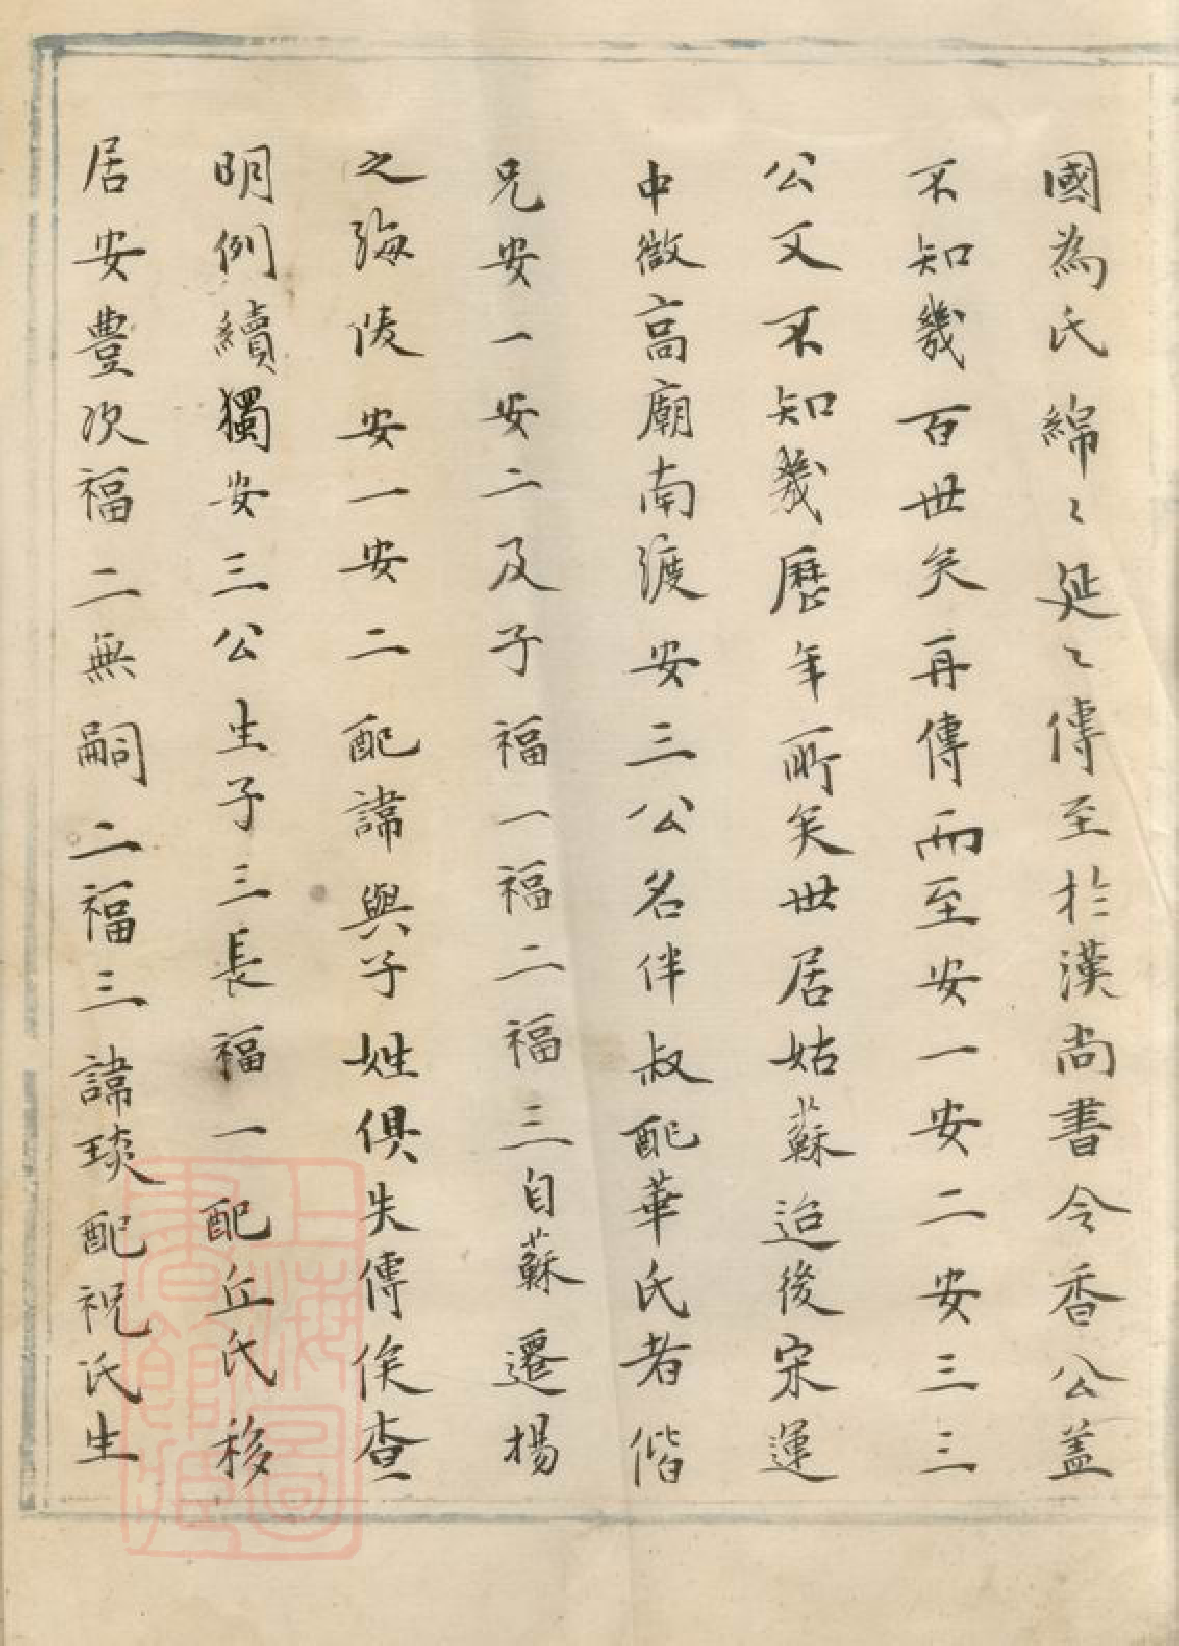 國為氏綿〻延〻傳至於漢尚書令香公盖
不知幾百世矣再傳而至安一安二安三三
公又不知幾歷年所矣世居姑蘇迨後宋運
中微高廟南渡安三公名伴叔配華氏者偕
兄安一安二及子福一福二福三自蘇遷揚
之海陵安一安二配諱與子姓俱失傳俟查
明例續獨安三公生子三長福一配丘氏移
居安豊次福二無嗣二福三諱琰配祝氏生
上海圖書館藏